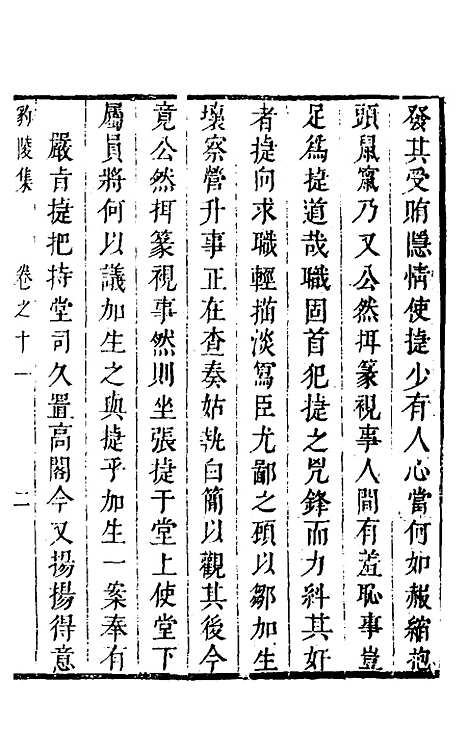 發其受賄隱情使捷少有人心當何如赧縮抱
頭鼠竄乃又公然抂篆視事人間有羞恥事豈
足爲捷道哉職固首犯捷之兇鋒而力糾其奸
者捷向求職輕描淡寫臣尤鄙之頃以鄒加生
壞察營升事正在查奏姑執白簡以觀其後今
竟公然抂篆視事然則坐張捷于堂上使堂下
屬員將何以議加生之與捷乎加生一案奉有
嚴旨捷把持堂司久置高閣今又揚揚得意
豹陵集 卷之十一 二